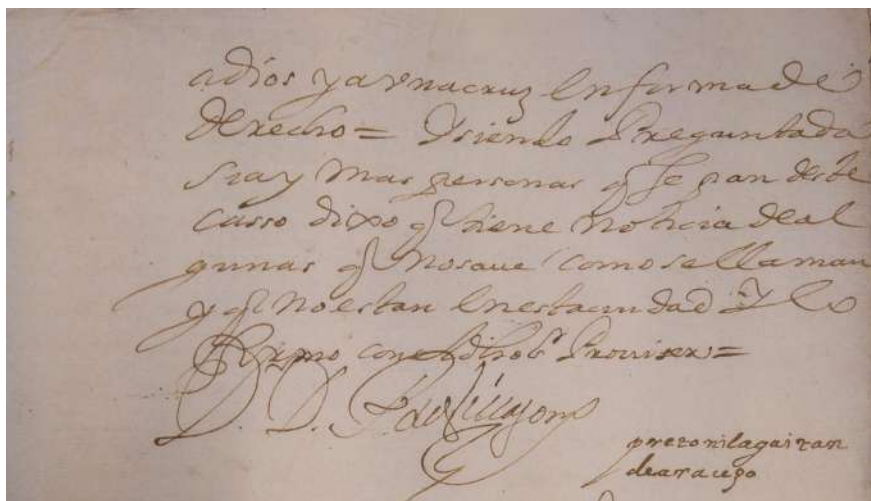 adios y a vna cruz en forma de
derecho = Y siendo Preguntada
si ay mas personas q̃ sepan deste
casso dixo q̃ tiene noticia de al
gunas q̃ no saue como se llaman
y q̃ no estan en esta ciudad y lo
firmo con el dho Sr Prouisor =
D. D. P de
petronila gaitan
de arauxo